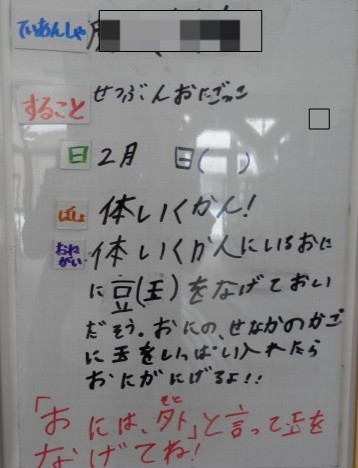 ていあんしゃ
すること せつぶんおにごっこ
日 2月 日( )
ばしょ 体いくかん!
おねがい 体いくかんにいるおに
に豆(玉)をなげておい
だそう。おにの、せなかのかご
に玉をいっぱい入れたら
おにがにげるよ!!
「おには、外」と言って玉を
そと
なげてね!